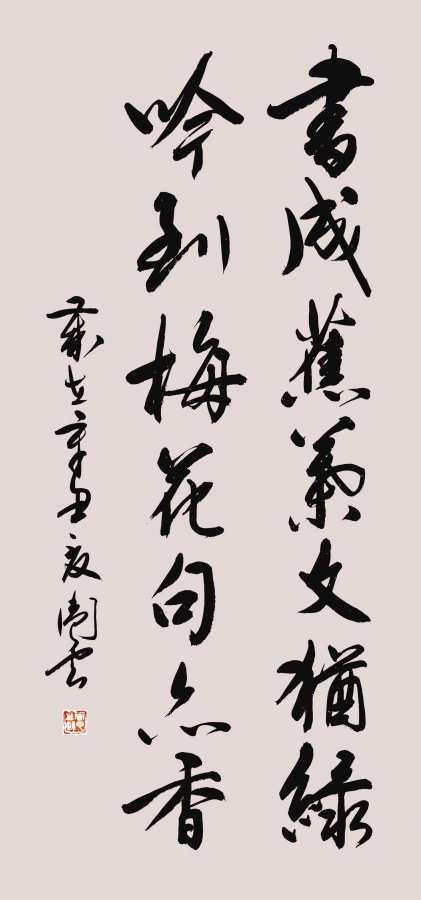 書成蕉葉文猶綠
吟到梅花句亦香
歲在辛丑夏